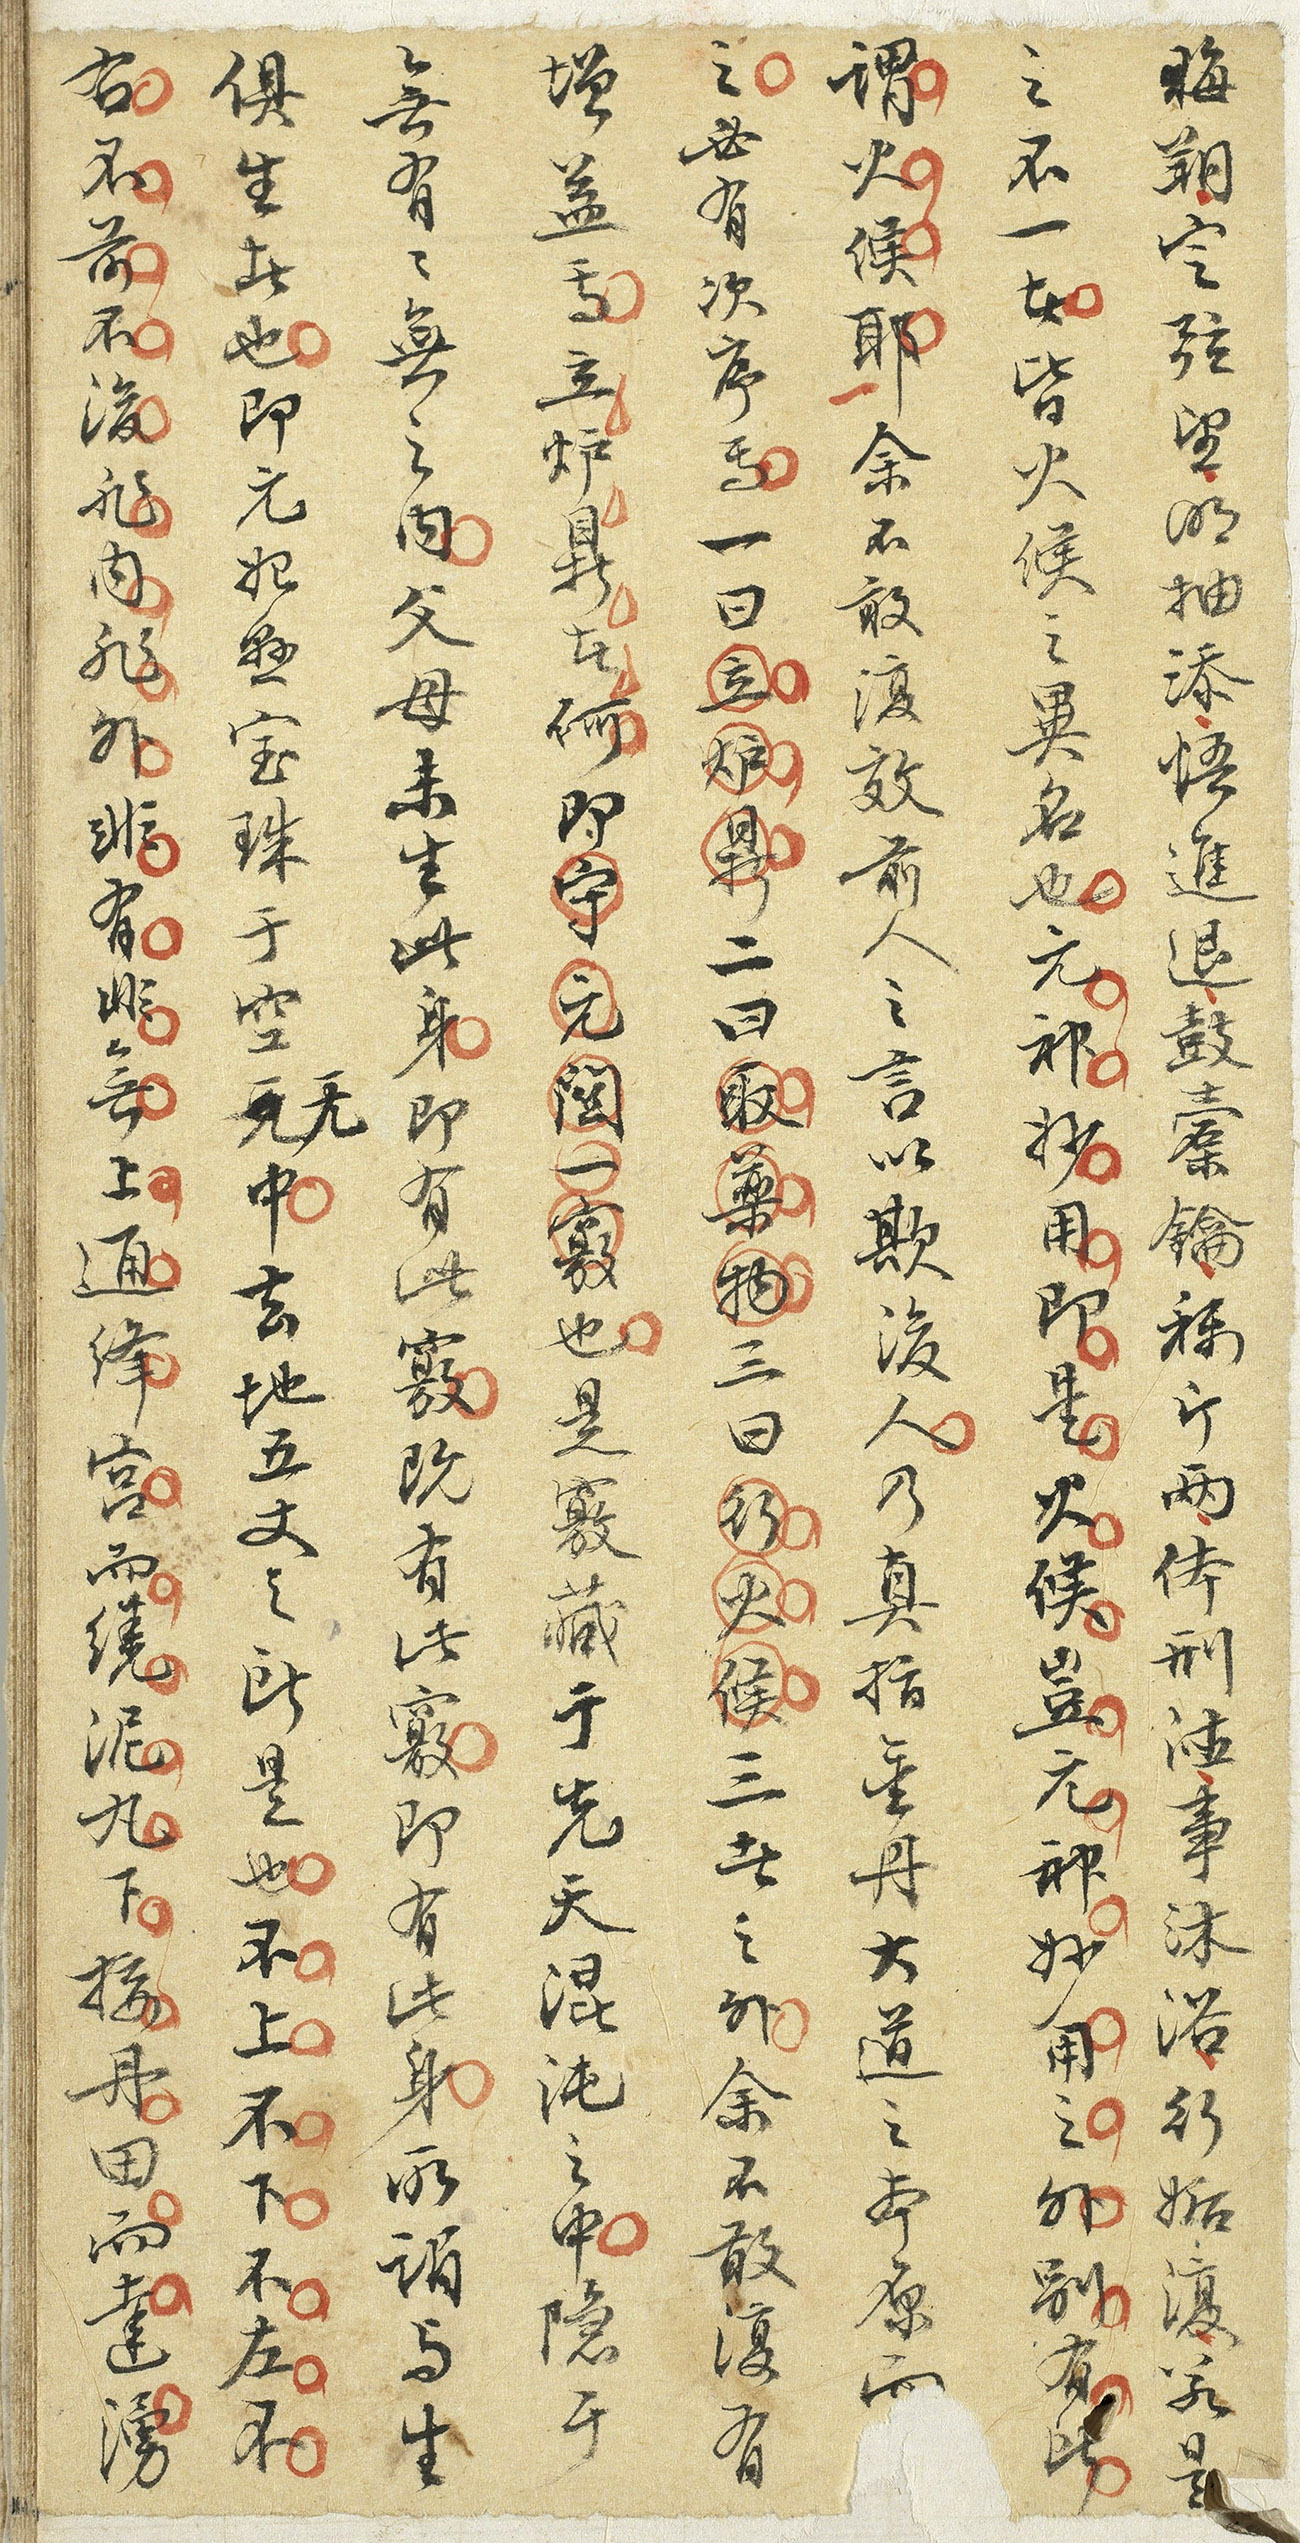 晦朔定弦望明抽添悟進退鼓橐鑰稱斤兩体刑德事沐浴行姤復若是
之不一者皆火候之異名也元神妙用即是火候豈元神妙用之外別有所
謂火候耶余不敢復效前人之言以欺後人乃真指金丹大道之本原而
之必有次序焉一曰立炉鼎二曰取藥物三曰行火候三者之外余不敢復有
增益焉立炉鼎者何即守元關一竅也是竅藏于先天混沌之中隐于
無有〻無之内父母未生此身即有此竅既有此竅即有此身所謂与生
俱生者也即元始懸宝珠于空无中去地五丈之所是也不上不下不左不
右不前不後非内非外非有非無上通絳宮而繞泥丸下接丹田而達湧